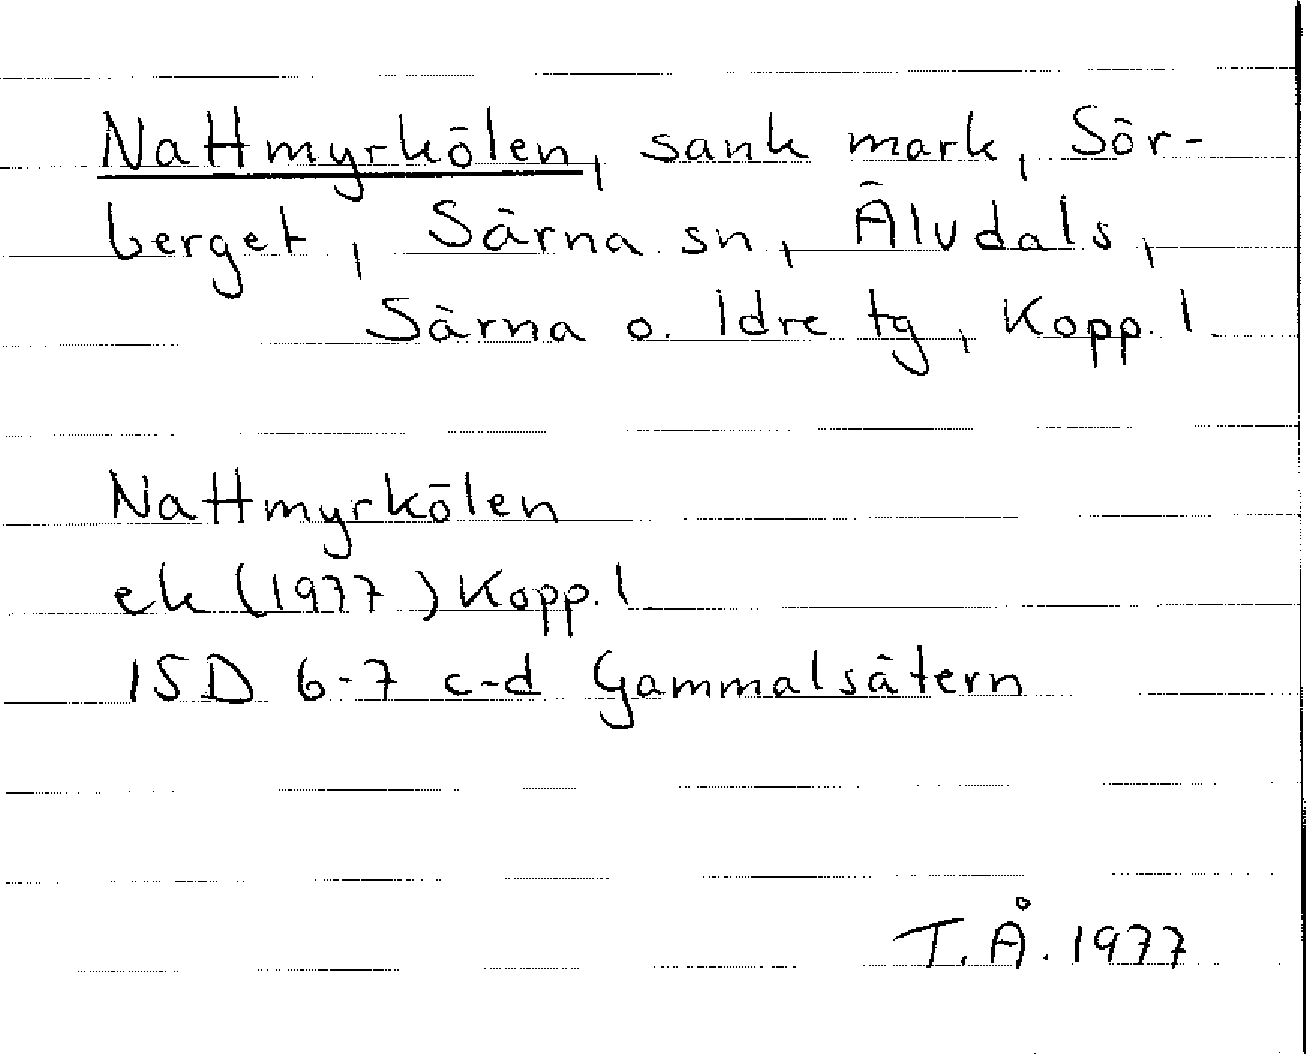 Nattmyrkölen, sank mark, Sör-
berget, Särna sn, Älvdals,
Särna o. Idre tg, Kopp. l
Nattmyrkölen
ek (1977) Kopp. l
15D 6-7 c-d Gammalsätern
T.Å. 1977